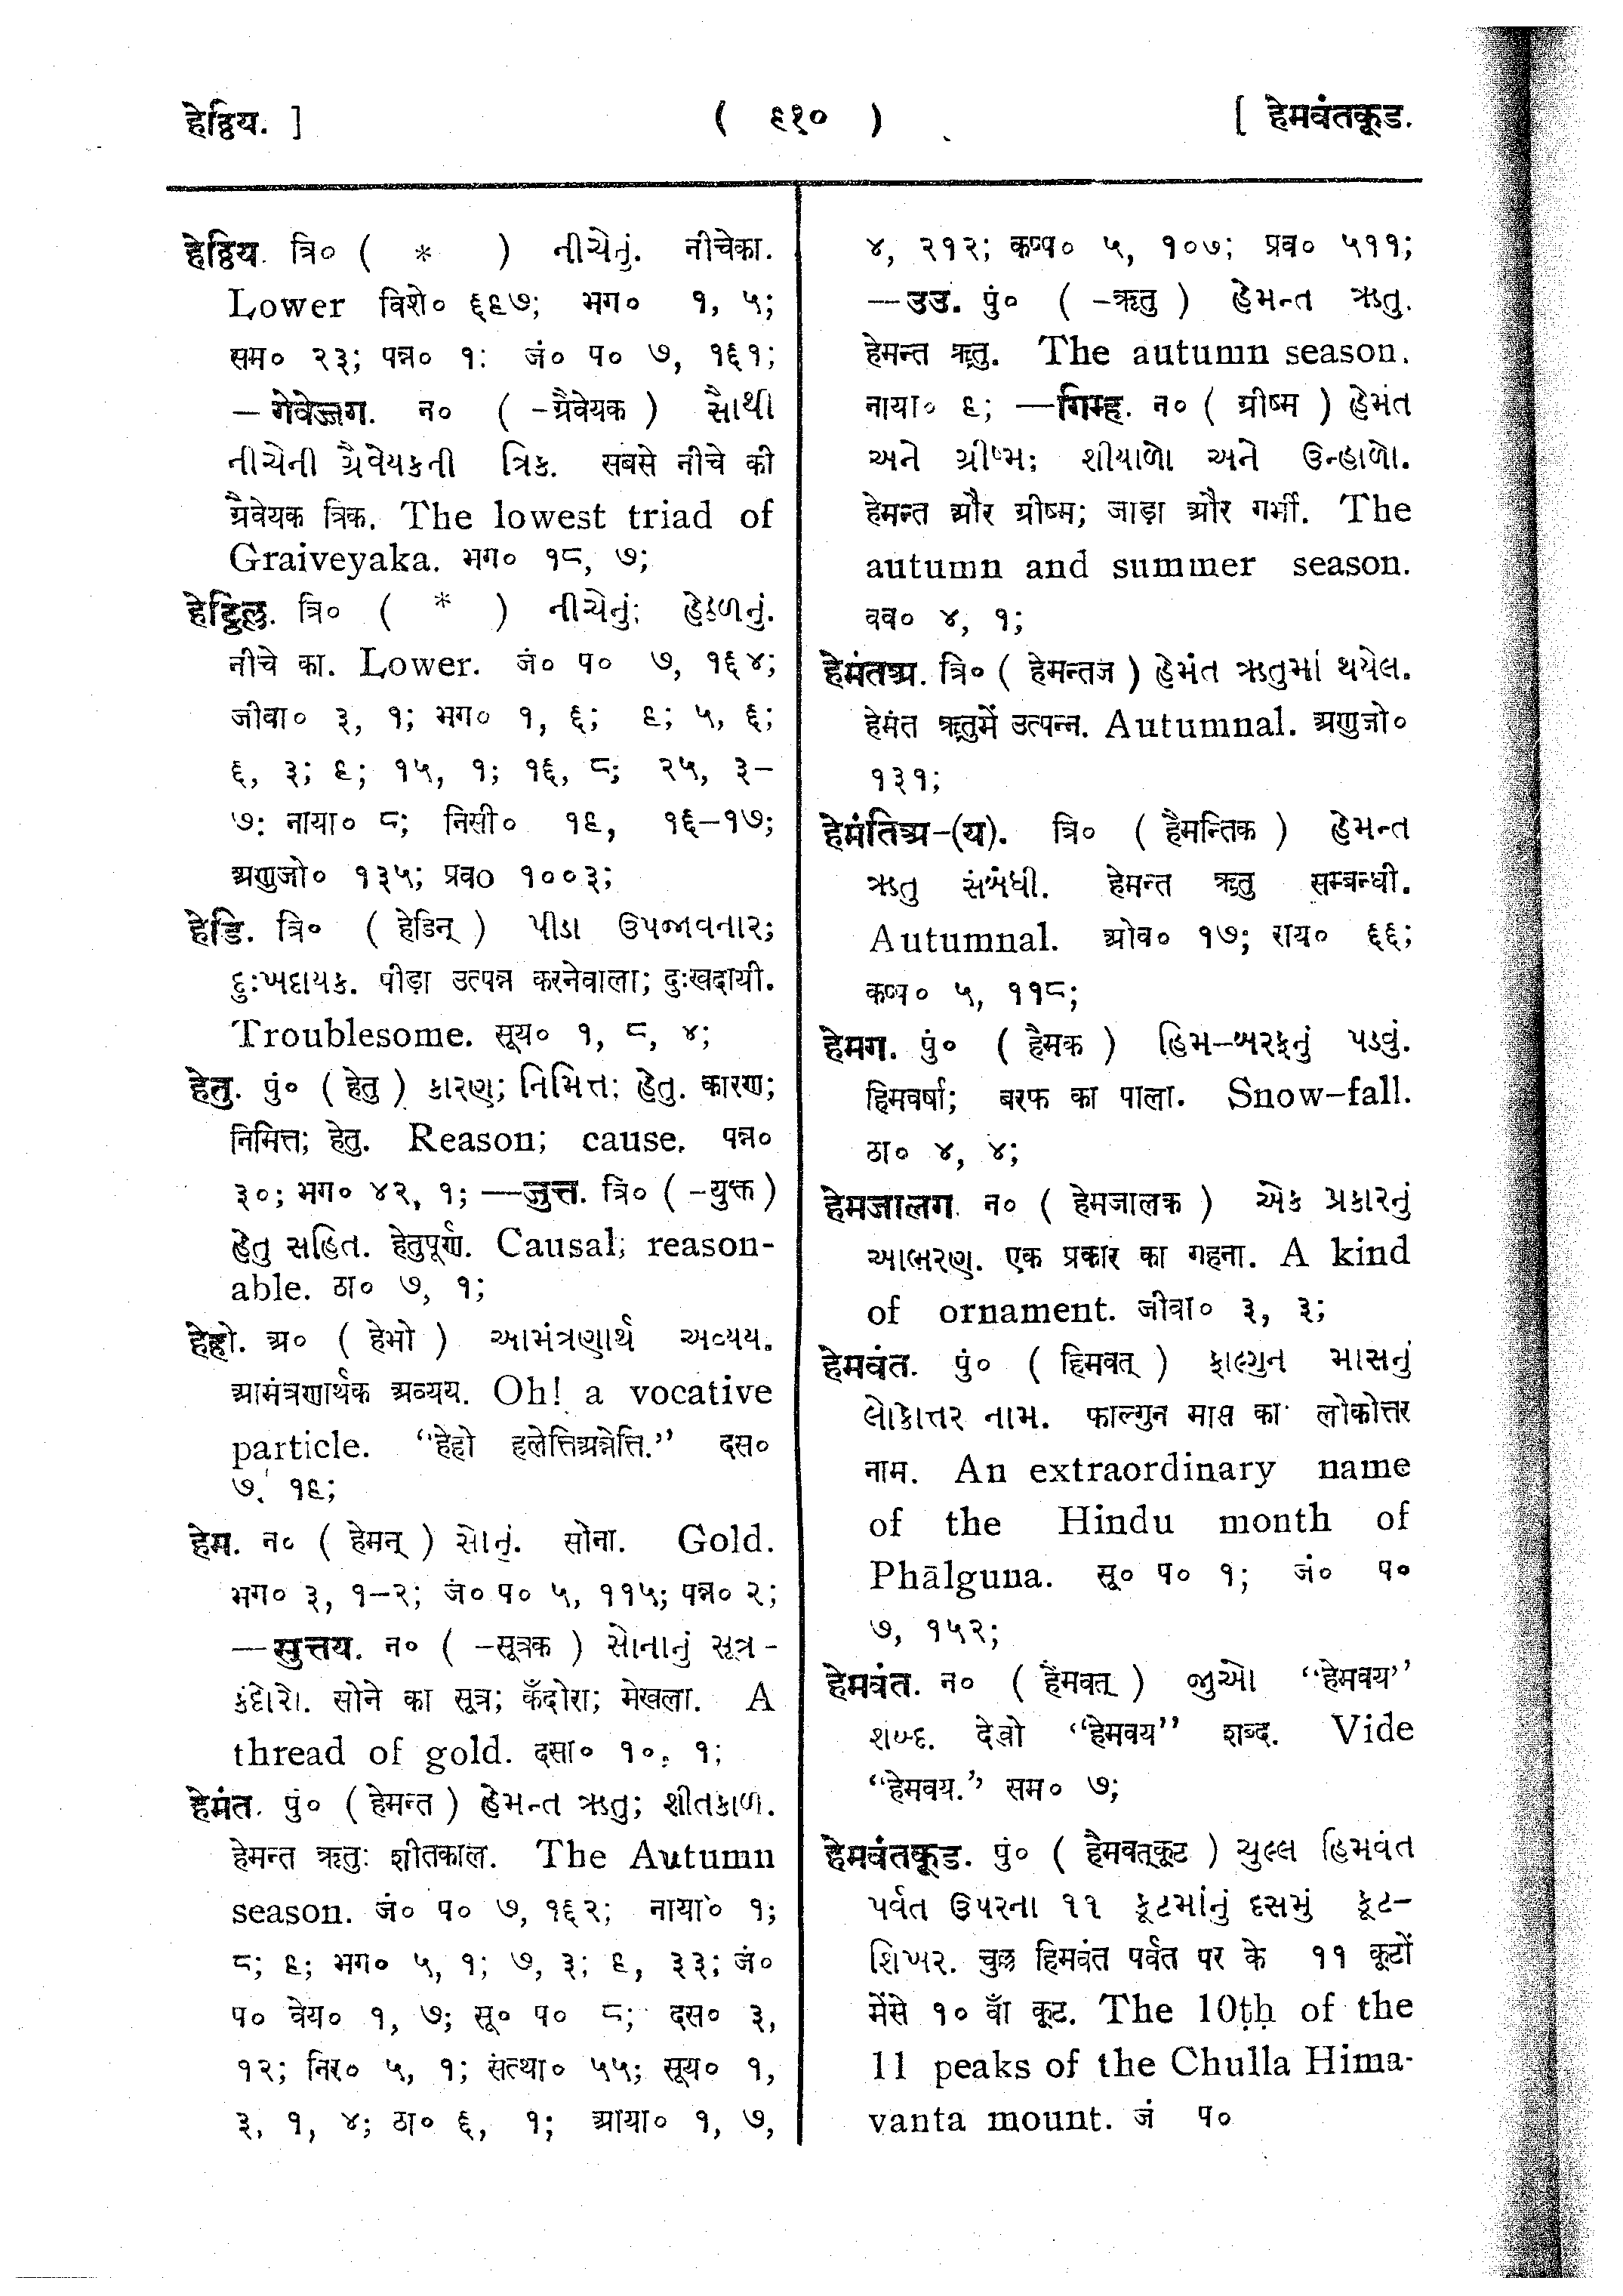 हेट्ठिय. ]
( ९१० )
[ हेमवंतकूड.
हेट्ठिय. त्रि० ( * ) નીચેનું. नीचेका.
Lower विशे० ६९७; भग० १, ५;
सम० २३; पन्न० १: जं० प० ७, १६१;
—गेवेज्जग. न० ( -ग्रैवेयक ) સૈાથી
નીચેની ગ્રૈવેયકની ત્રિક. सबसे नीचे की
ग्रैवेयक त्रिक. The lowest triad of
Graiveyaka. भग० १८, ७;
हेट्ठिल्ल. त्रि० ( * ) નીચેનું; હેઠળનું.
नीचे का. Lower. जं० प० ७, १६४;
जीवा० ३, १; भग० १, ६; ९; ५, ६;
६, ३; ९; १५, १; १६, ८; २५, ३–
७: नाया० ८; निसी० १९, १६–१७;
अणुजो० १३५; प्रव० १००३;
हेडि. त्रि० ( हेडिन् ) પીડા ઉપજાવનાર;
દુઃખદાયક. पीड़ा उत्पन्न करनेवाला; दुःखदायी.
Troublesome. सूय० १, ८, ४;
हेतु. पुं० ( हेतु ) કારણ; નિમિત્ત; હેતુ. कारण;
निमित्त; हेतु. Reason; cause. पन्न०
३०; भग० ४२, १; —जुत्त. त्रि० ( -युक्त )
હેતુ સહિત. हेतुपूर्ण. Causal; reason-
able. ठा० ७, १;
हेहो. अ० ( हेभो ) આમંત્રણાર્થ અવ્યય.
आमंत्रणार्थक अव्यय. Oh! a vocative
particle. “हेहो हलेत्तिअन्नेत्ति.” दस०
७, १९;
हेम. न० ( हेमन् ) સોનું. सोना. Gold.
भग० ३, १–२; जं० प० ५, ११५; पन्न० २;
—सुत्तय. न० ( -सूत्रक ) સોનાનું સૂત્ર -
કંદોરો. सोने का सूत्र; कँदोरा; मेखला. A
thread of gold. दसा० १०, १;
हेमंत. पुं० ( हेमन्त ) હેમન્ત ઋતુ; શીતકાળ.
हेमन्त ऋतुः शीतकाल. The Autumn
season. जं० प० ७, १६२; नाया० १;
८; ९; भग० ५, १; ७, ३; ९, ३३; जं०
प० वेय० १, ७; सू० प० ८; दस० ३,
१२; निर० ५, १; संत्था० ५५; सूय० १,
३, १, ४; ठा० ६, १; आया० १, ७,
४, २१२; कप्प० ५, १०७; प्रव० ५११;
—उउ. पुं० ( -ऋतु ) હેમન્ત ઋતુ.
हेमन्त ऋतु. The autumn season.
नाया० ९; —गिम्ह. न० ( ग्रीष्म ) હેમંત
અને ગ્રીષ્મ; શીયાળો અને ઉન્હાળો.
हेमन्त और ग्रीष्म; जाड़ा और गर्मी. The
autumn and summer season.
वव० ४, १;
हेमंतअ. त्रि० ( हेमन्तज ) હેમંત ઋતુમાં થયેલ.
हेमंत ऋतुमें उत्पन्न. Autumnal. अणुजो०
१३१;
हेमंतिअ–(य). त्रि० ( हैमन्तिक ) હેમન્ત
ઋતુ સંબંધી. हेमन्त ऋतु सम्बन्धी.
Autumnal. ओव० १७; राय० ६६;
कप्प० ५, ११८;
हेमग. पुं० ( हैमक ) હિમ–બરફનું પડવું.
हिमवर्षा; बरफ का पाला. Snow-fall.
ठा० ४, ४;
हेमजालग. न० ( हेमजालक ) એક પ્રકારનું
આભરણ. एक प्रकार का गहना. A kind
of ornament. जीवा० ३, ३;
हेमवंत. पुं० ( हिमवत् ) ફાલ્ગુન માસનું
લોકોત્તર નામ. फाल्गुन मास का लोकोत्तर
नाम. An extraordinary name
of the Hindu month of
Phālguna. सू० प० १; जं० प०
७, १५२;
हेमवंत. न० ( हैमवत् ) જુઓ “हेमवय”
શબ્દ. देखो “हेमवय” शब्द. Vide
“हेमवय.” सम० ७;
हेमवंतकूड. पुं० ( हैमवत्कूट ) ચુલ્લ હિમવંત
પર્વત ઉપરના ૧૧ કૂટમાંનું દસમું કૂટ–
શિખર. चुल्ल हिमवंत पर्वत पर के ११ कूटों
मेंसे १० वाँ कूट. The 10ṭḥ of the
11 peaks of the Chulla Hima-
vanta mount. जं प०